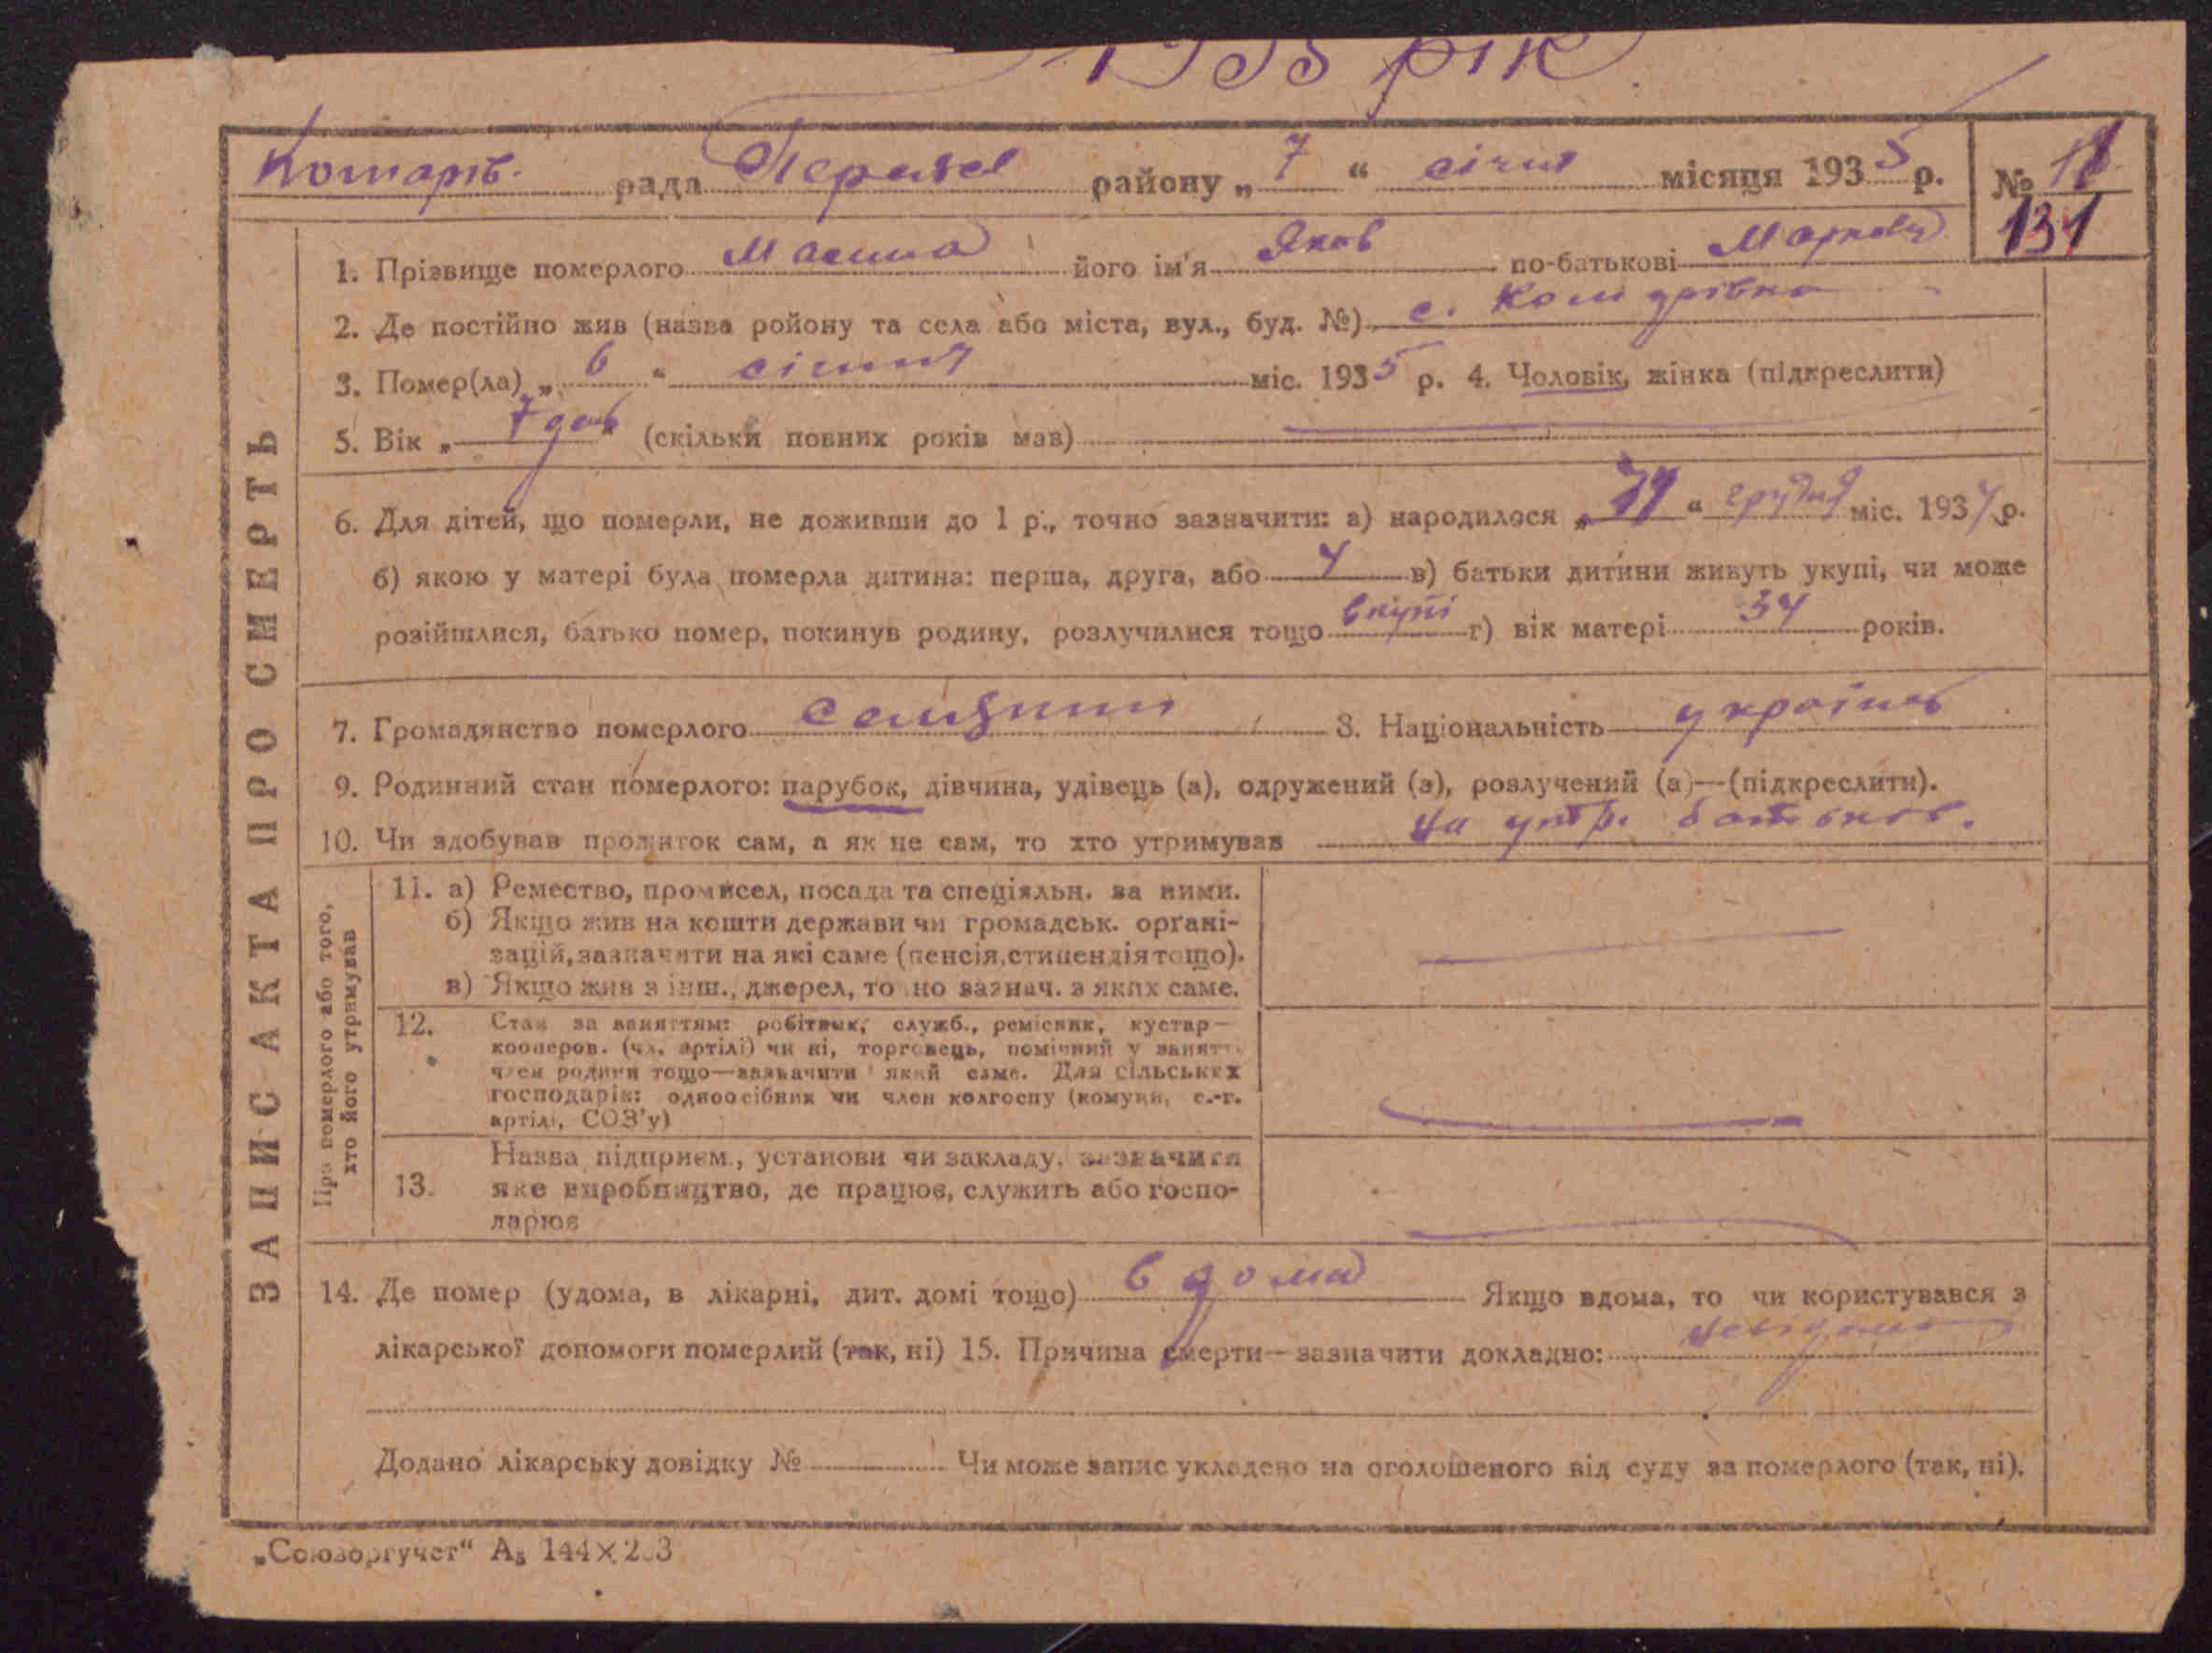 1935 рік
рада района „ 7 “ січня місяця 1935 р. №
131
1. Прізвище померлого його ім'я Яков по-батькові
2. Де постійно жив (назва ройону та села або міста, вул., буд. №) с.
3. Помер(ла) „ 6 “ січня міс. 1935 р. 4. Чоловік, жінка (підкреслити)
5. Вік „ 7 днів “ (скільки повних років мав)
6. Для дітей, що померли, не доживши до 1 р., точно зазначити: а) народилося „ “ грудня міс. 1934 р.
б) якою у матері була померла дитина: перша, друга, або 4 в) батьки дитини живуть укупі, чи може
розійшлися, батько помер, покинув родину, розлучилися тощо вкупі г) вік матері 34 років.
7. Громадянство померлого 8. Національність українець
9. Родинний стан померлого: парубок, дівчина, удівець (а), одружений (а), розлучений (а)—(підкреслити).
10. Чи здобував прожиток сам, а як не сам, то хто утримував На утр. батьков.
ЗАПИС АКТА ПРО СМЕРТЬ
Про померлого або того,
хто його утримував
11. а) Ремество, промисел, посада та спеціяльн. за ними.
б) Якщо жив на кошти держави чи громадськ. органі-
зацій, зазначити на які саме (пенсія, стипендія тощо).
в) Якщо жив з інш., джерел, то но зазнач. з яких саме.
12. Стан за заняттям: робітник, служб., ремісник, кустар—
кооперов. (чл. артілі) чи ні, торговець, помічний у занятт.
член родини тощо—зазначити який саме. Для сільських
господарів: одноосібник чи член колгоспу (комуни, с.-г.
артілі, СОЗ'у)
13. Назва підприєм., установи чи закладу. зазначити
яке виробництво, де працює, служить або госпо-
дарює
14. Де помер (удома, в лікарні, дит. домі тощо) вдома Якщо вдома, то чи користувався з
лікарської допомоги померлий (так, ні) 15. Причина смерти—зазначити докладно: невідома
Додано лікарську довідку № Чи може запис укладено на оголошеного від суду за померлого (так, ні).
„Союзоргучет“ А₅ 144×203